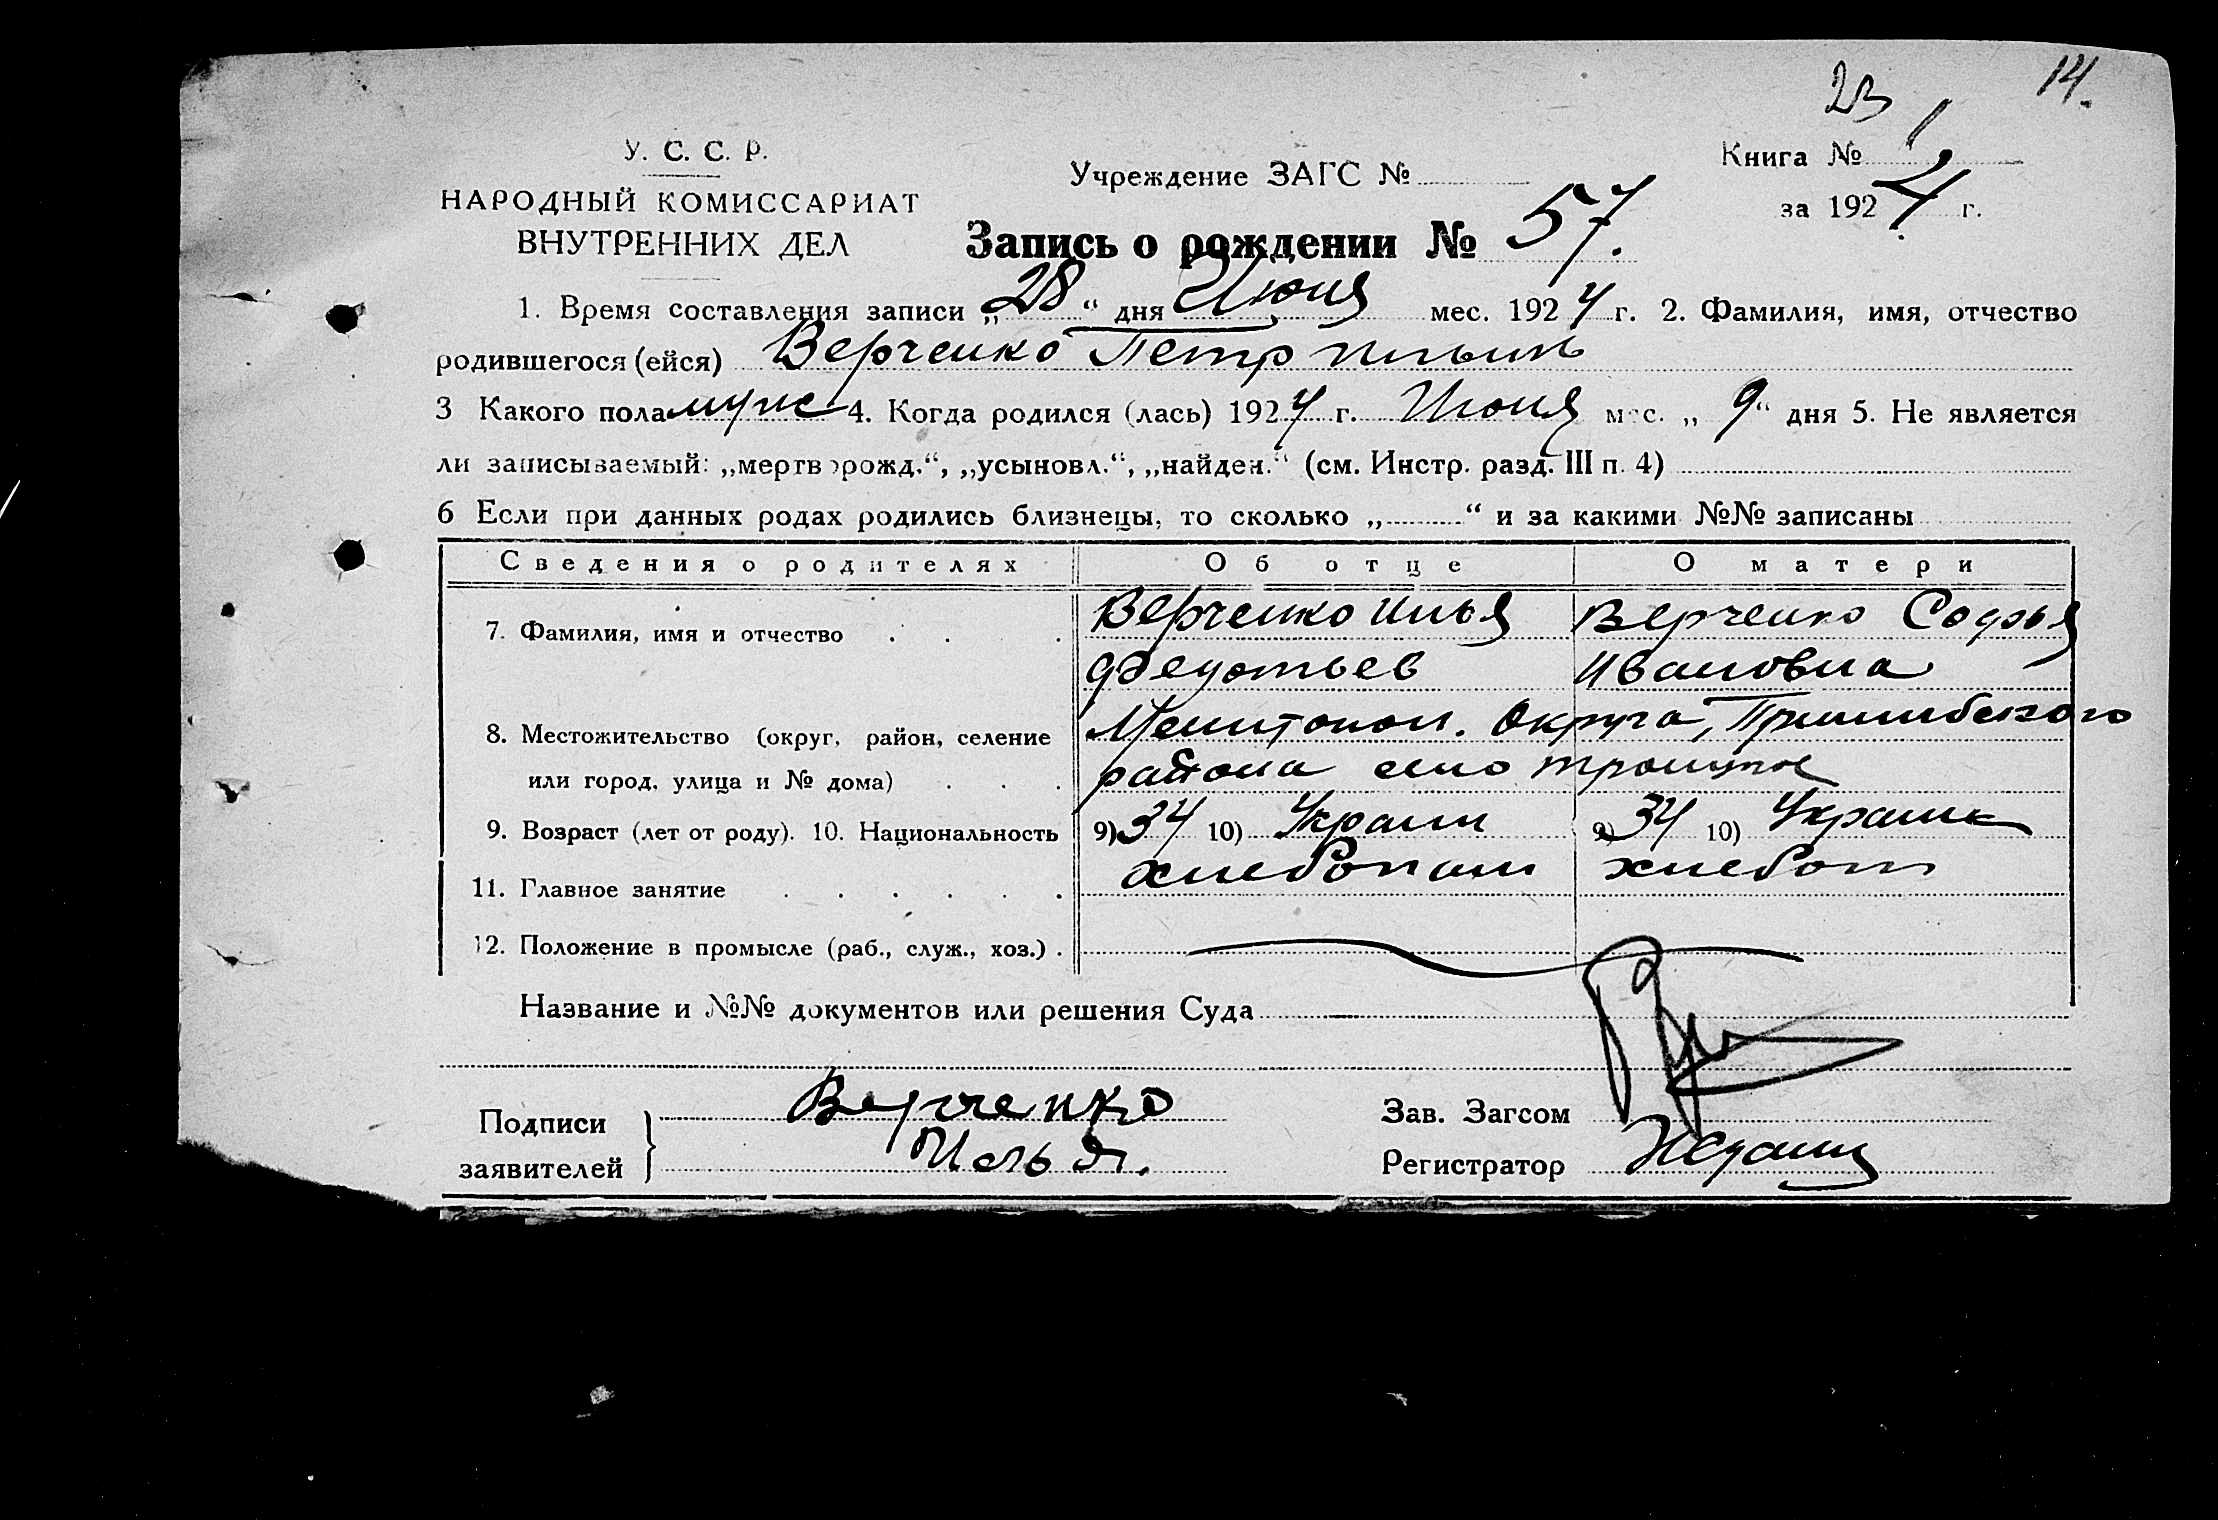 23
14.
У. С. С. Р.
НАРОДНЫЙ КОМИССАРИАТ
ВНУТРЕННИХ ДЕЛ
Учреждение ЗАГС №
Книга № 1
за 1924 г.
Запись о рождении № 57.
1. Время составления записи „28“ дня Июня мес. 1924 г. 2. Фамилия, имя, отчество
родившегося (ейся) Верченко Петр Ильин
3 Какого пола муж 4. Когда родился (лась) 1924 г. Июня мес. „9“ дня 5. Не является
ли записываемый: „мертворожд.“, „усыновл.“, „найден.“ (см. Инстр. разд. III п. 4)
6 Если при данных родах родились близнецы, то сколько „ “ и за какими №№ записаны
Сведения о родителях Об отце О матери
7. Фамилия, имя и отчество Верченко Илья Верченко Софья
Федотьев Ивановна
8. Местожительство (округ, район, селение Мелитопол. Округа, Пришибского
или город, улица и № дома) района село Троицкое
9. Возраст (лет от роду). 10. Национальность 9) 34 10) Украин 9) 34 10) Украинк
11. Главное занятие хлебопаш хлебоп
12. Положение в промысле (раб., служ., хоз.)
Название и №№ документов или решения Суда
Подписи заявителей Верченко
Илья.
Зав. Загсом
Регистратор